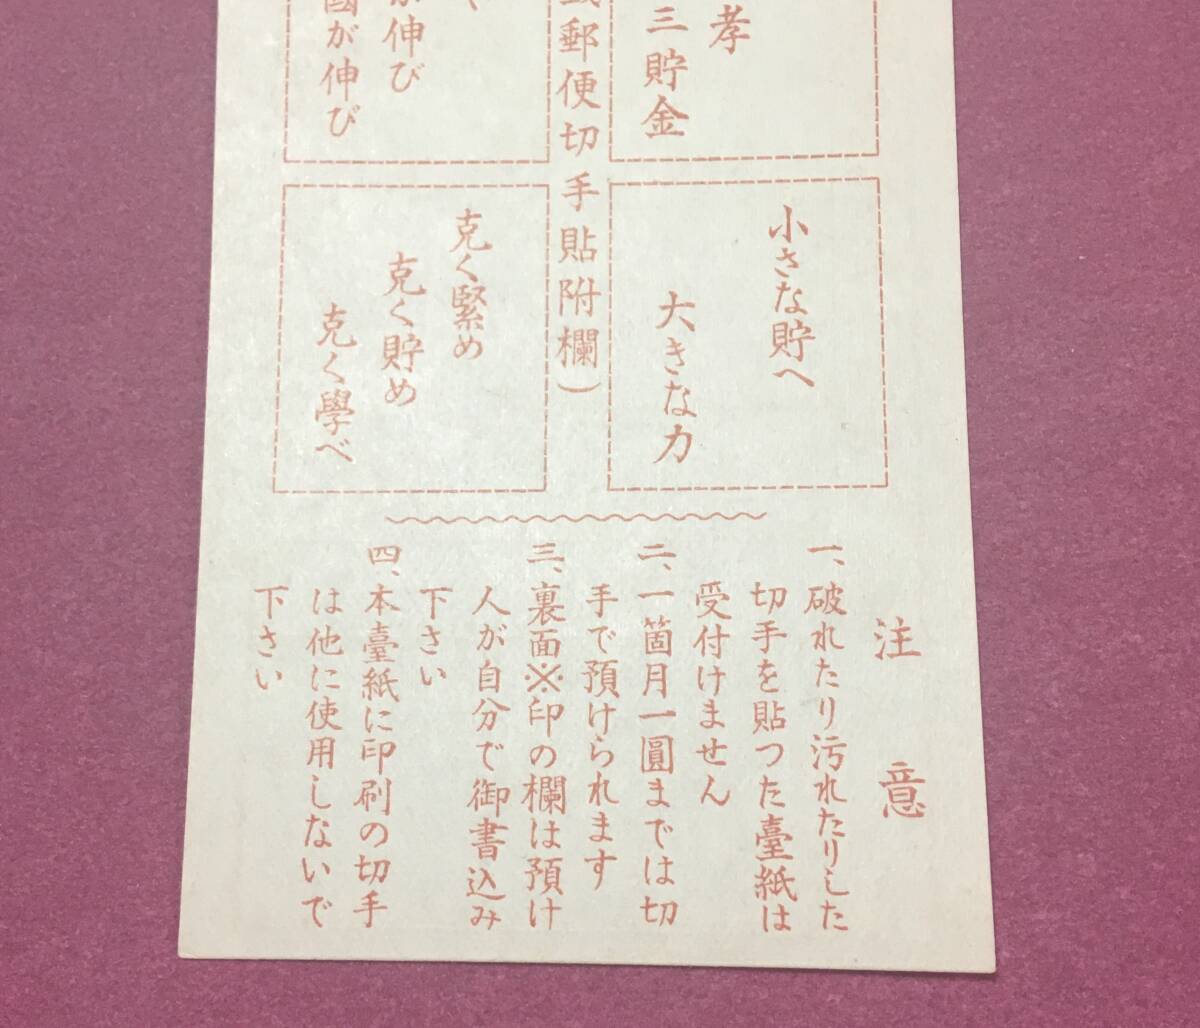 孝
三貯金
郵便切手貼附欄)
が伸び
國が伸び
小さな貯へ
大きな力
克く緊め
克く貯め
克く學べ
注意
一、破れたり汚れたりした
切手を貼つた臺紙は
受付けません
二、一箇月一圓までは切
手で預けられます
三、裏面※印の欄は預け
人が自分で御書込み
下さい
四、本臺紙に印刷の切手
は他に使用しないで
下さい